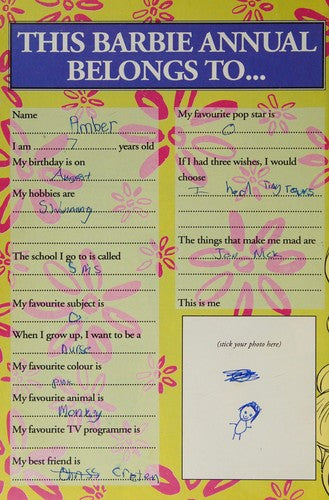 THIS BARBIE ANNUAL
BELONGS TO...
Name
Amber
I am 7 years old
My birthday is on
August
My hobbies are
The school I go to is called
SMS
My favourite subject is
When I grow up, I want to be a
nurse
My favourite colour is
pink
My favourite animal is
Monkey
My favourite TV programme is
My best friend is
My favourite pop star is
If I had three wishes, I would
choose
I
The things that make me mad are
This is me
(stick your photo here)